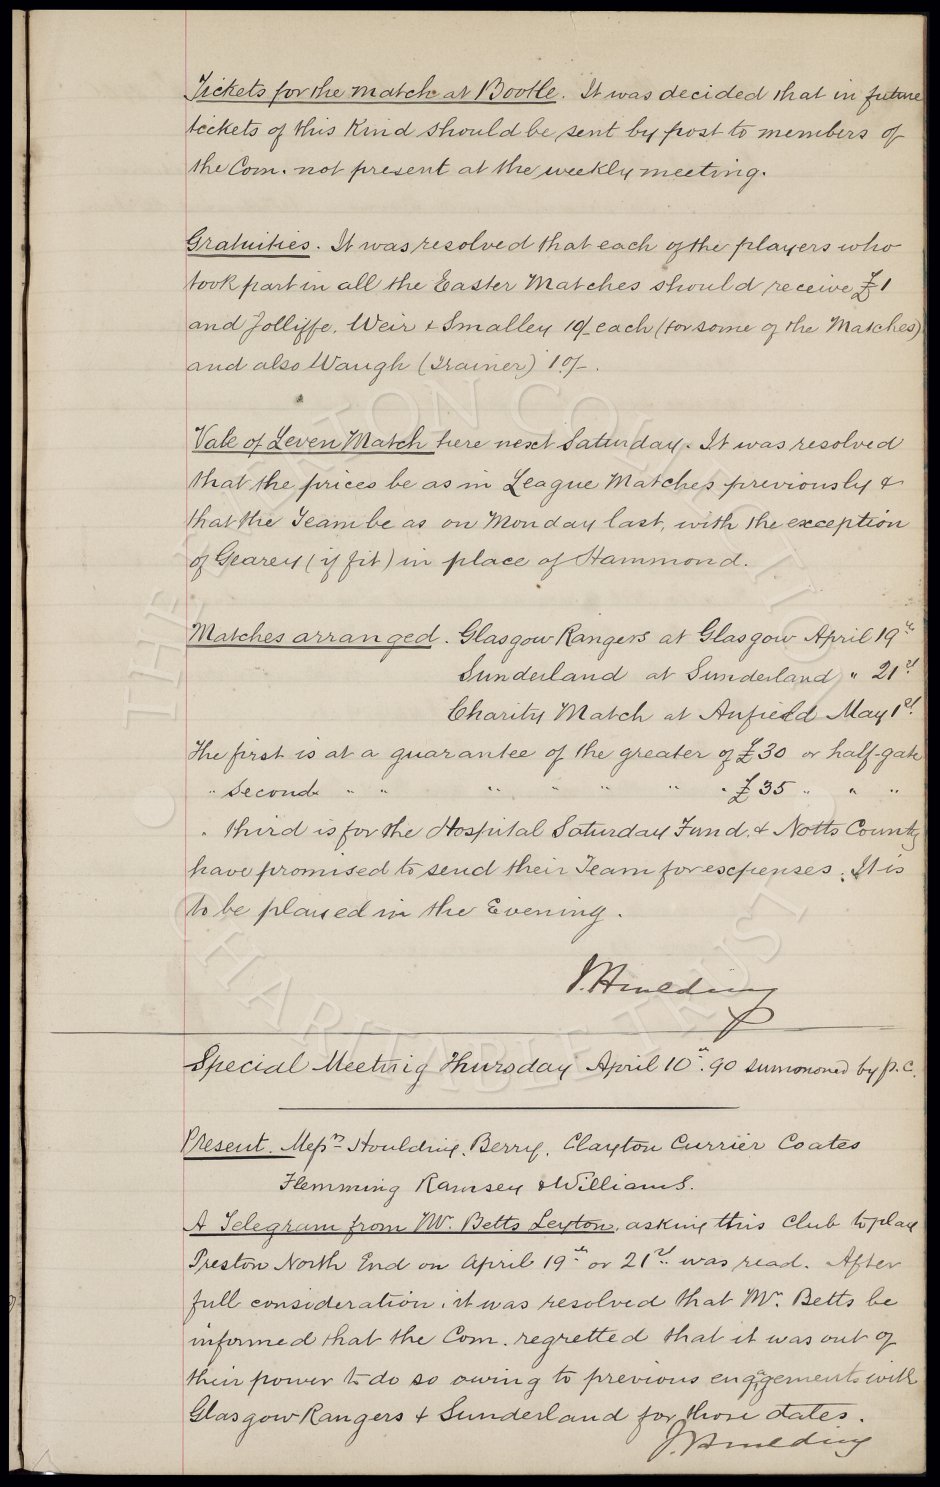 Tickets for the match at Bootle. It was decided that in future
tickets of this kind should be sent by post to members of
the Com. not present at the weekly meeting.
Gratuities. It was resolved that each of the players who
took part in all the Easter Matches should receive £1
and Jolliffe, Weir & Smalley 10/- each (for some of the Matches)
and also Waugh (Trainer) 10/-.
Vale of Leven Match here next Saturday. It was resolved
that the prices be as in League Matches previously &
that the Team be as on Monday last, with the exception
of Gearey (if fit) in place of Hammond.
Matches arranged. Glasgow Rangers at Glasgow April 19th
Sunderland at Sunderland " 21st
Charity Match at Anfield May 1st.
The first is at a guarantee of the greater of £30 or half-gate
" Second " " " " " " " £35 " " "
" third is for the Hospital Saturday Fund, & Notts County
have promised to send their Team for expenses. It is
to be played in the Evening.
J. Houlding
Special Meeting Thursday April 10th. 90 summoned by p.c.
Present. Messrs Houlding, Berry, Clayton Currier Coates
Flemming Ramsey & Williams.
A Telegram from Mr. Betts Leyton, asking this Club to play
Preston North End on April 19th or 21st was read. After
full consideration, it was resolved that Mr. Betts be
informed that the Com. regretted that it was out of
their power to do so owing to previous engagements with
Glasgow Rangers & Sunderland for those dates.
J. Houlding
THE EVERTON COLLECTION
CHARITABLE TRUST